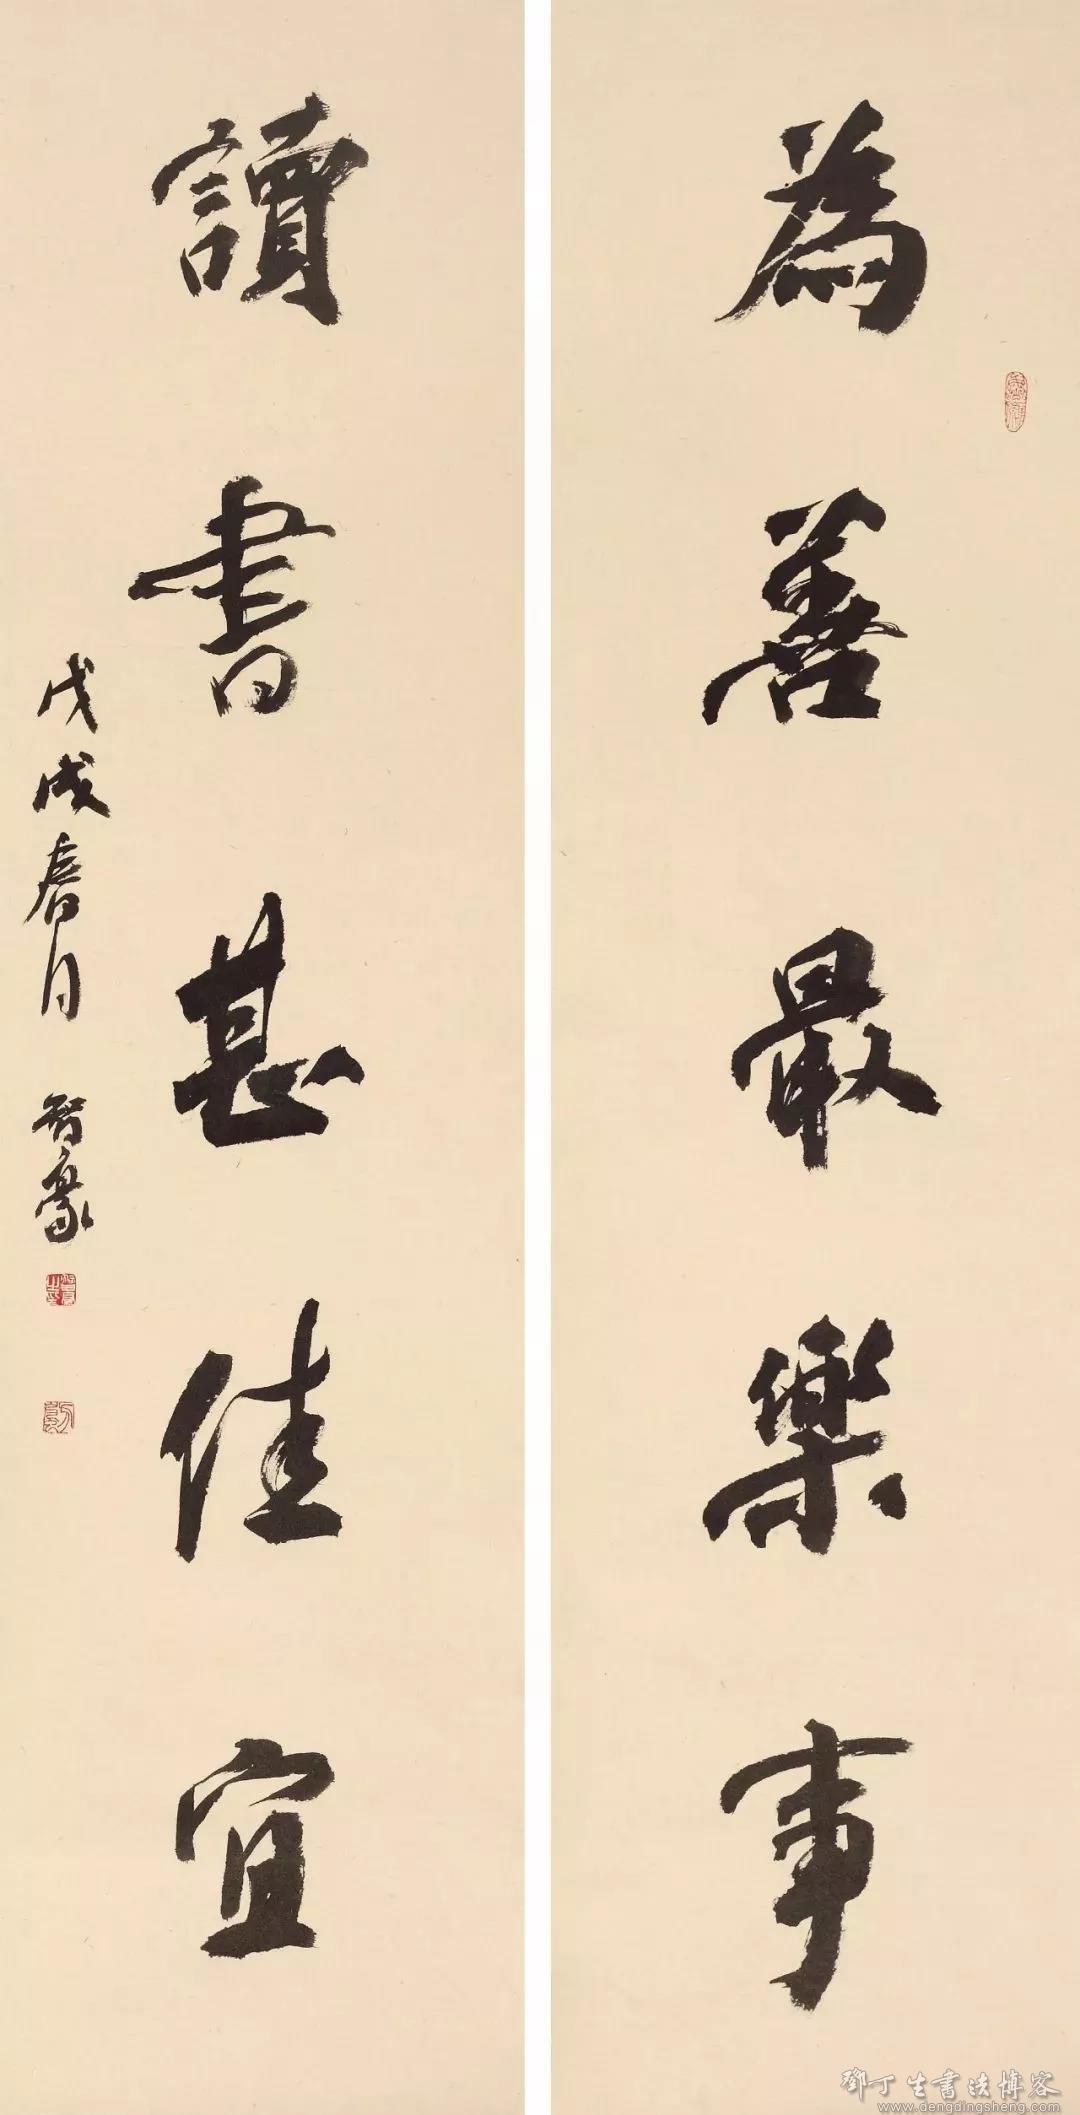 為善最樂事
讀書甚佳宜
戊戌春月 智豪
鄧丁生書法博客
www.dengdingsheng.com